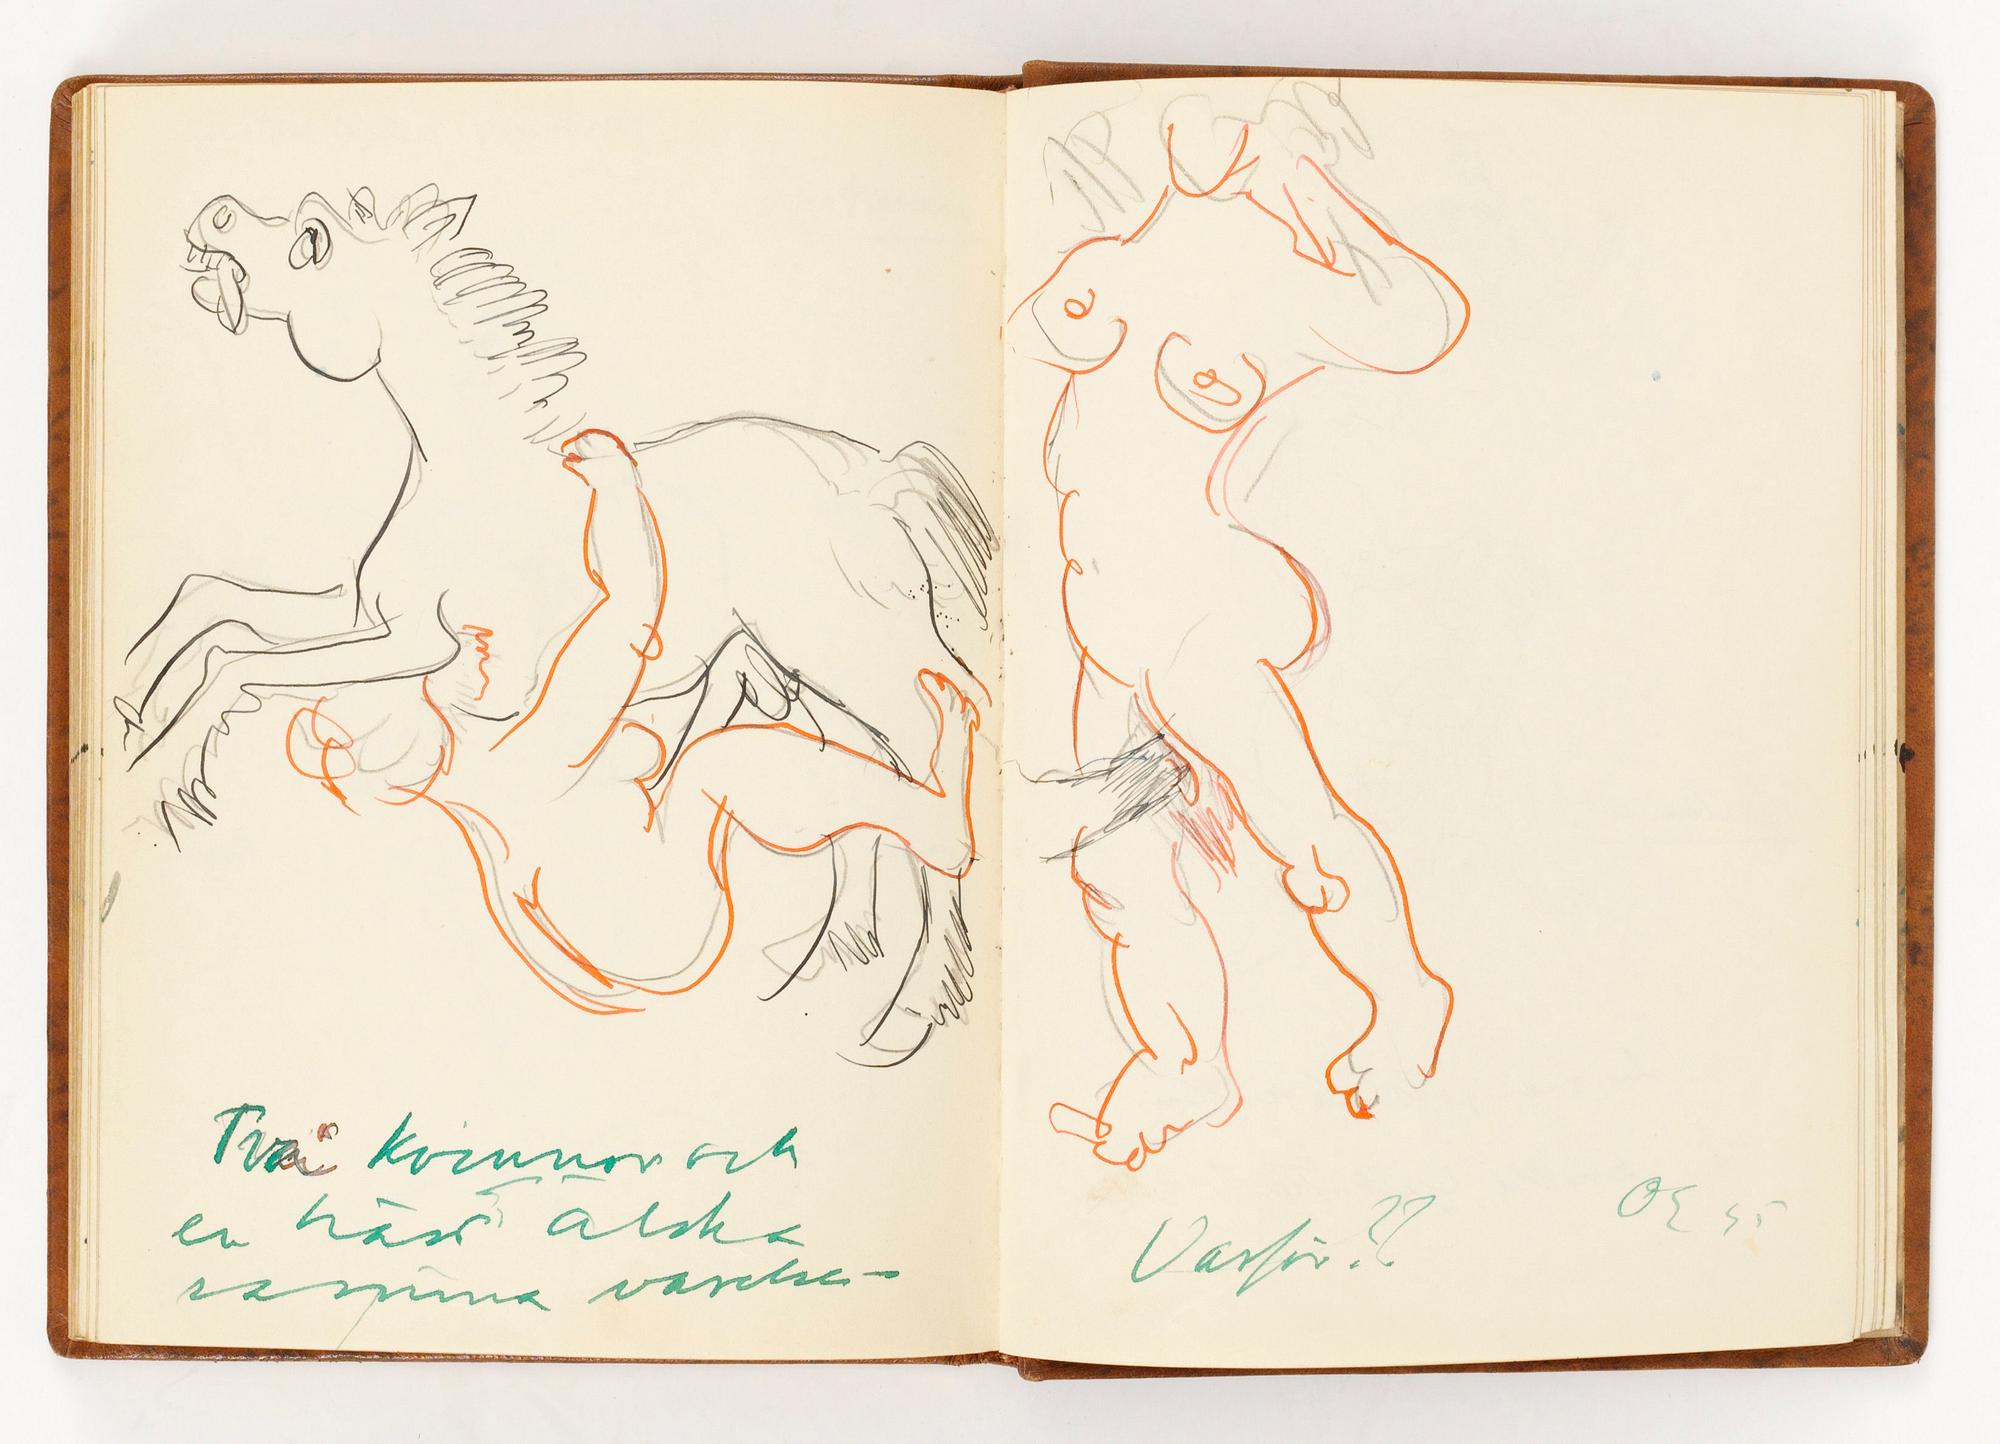 Två kvinnor och
en häst älska
samma varelse –
Varför??
OE 55